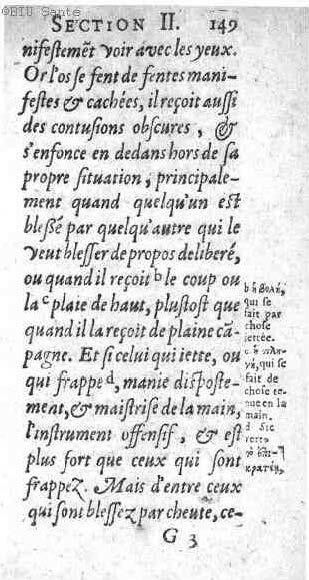 ©BIU Santé
SECTION II. 149
nifestemẽt voir avec les yeux.
Or l'os se fent de fentes mani-
festes & cachées, il reçoit aussi
des contusions obscures, &
s'enfonce en dedans hors de sa
propre situation, principale-
ment quand quelqu'un est
blessé par quelqu'autre qui le
veut blesser de propos deliberé,
ou quand il reçoit b le coup ou
la c plaie de haut, plustost que
quand il la reçoit de plaine cã-
pagne. Et si celui qui iette, ou
qui frappe d, manie disposte-
ment, & maistrise de la main,
l'instrument offensif, & est
plus fort que ceux qui sont
frappez. Mais d'entre ceux
qui sont blessez par cheute, ce-
G 3
b ἡ βολή,
qui se
fait par
chose
iettée.
c ἡ πλη-
γή, qui se
fait de
chose te-
nue en la
main.
d Sic
κρατέῃ,